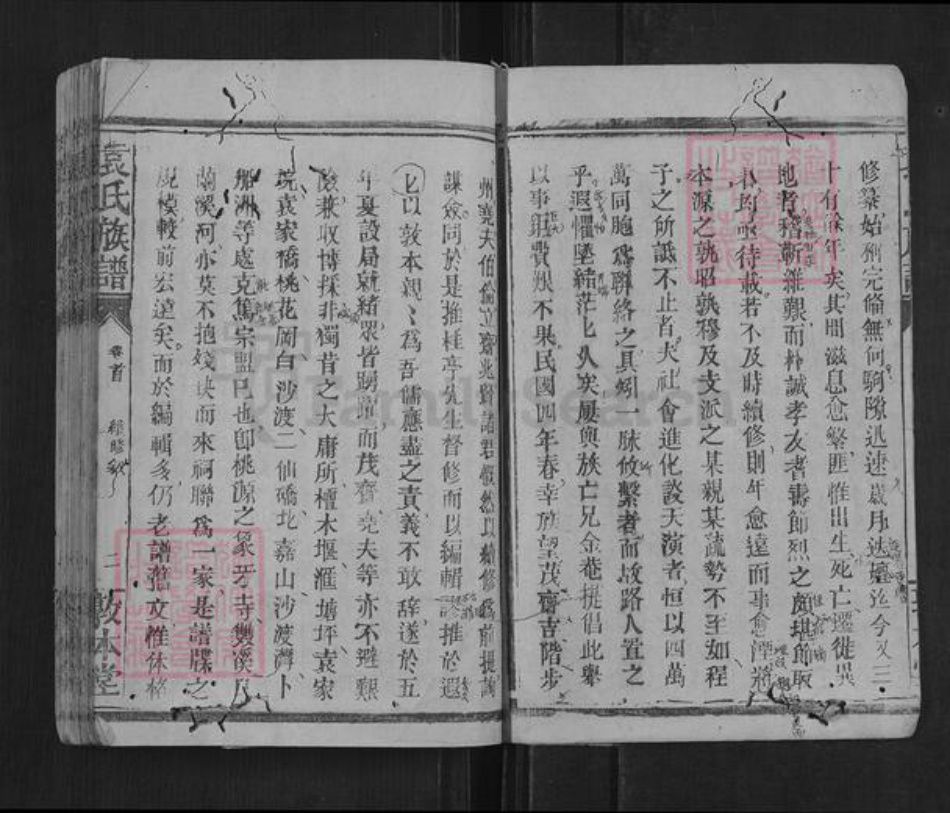 修纂始剏完備無何駒隙迅速歲月迭
十有餘年矣其間滋息愈繁匪惟出生死亡遷徙異
地者稽斬維艱而朴誠孝友耆壽節烈之
亟待載若不及時續修則年愈遠而事愈湮將
本源之孰昭孰穆及支派之某親某疏勢不至如程
子之所詆不止者夫社會進化談天演者恒以四萬
萬同胞為聯絡之具矧一脉攸繫者而故路人置之
乎遐懼墜緒茫七久矣屢與族亡兄金菴提倡此舉
以事鉅費艱不果民國四年春幸族望茂齋吉階步
州堯夫伯倫立齋兆賢諸君慨然以續修為前提詢
謀僉同於是推桂亭先生督修而以編輯推於遐
七以敦本親〻為吾儒應盡之責義不敢辭遂於五
年夏設局就緒眾皆踴躍而茂齋堯夫等亦不避艱
險兼收博採非獨昔之大庸所檀木堰滙塘坪袁家
垸袁家橋桃花岡白沙渡二仙礄北嘉山沙渡灣卜
那洲等處克篤宗盟已也卽桃源之象牙寺雙溪
蘭溪河亦莫不抱殘缺而來祠聯為一家是譜牒之
規模較前宏遠矣而於編輯多仍老譜舊文惟休格
袁氏族譜
卷首
續修敘
二
敦本堂
FamilySearch